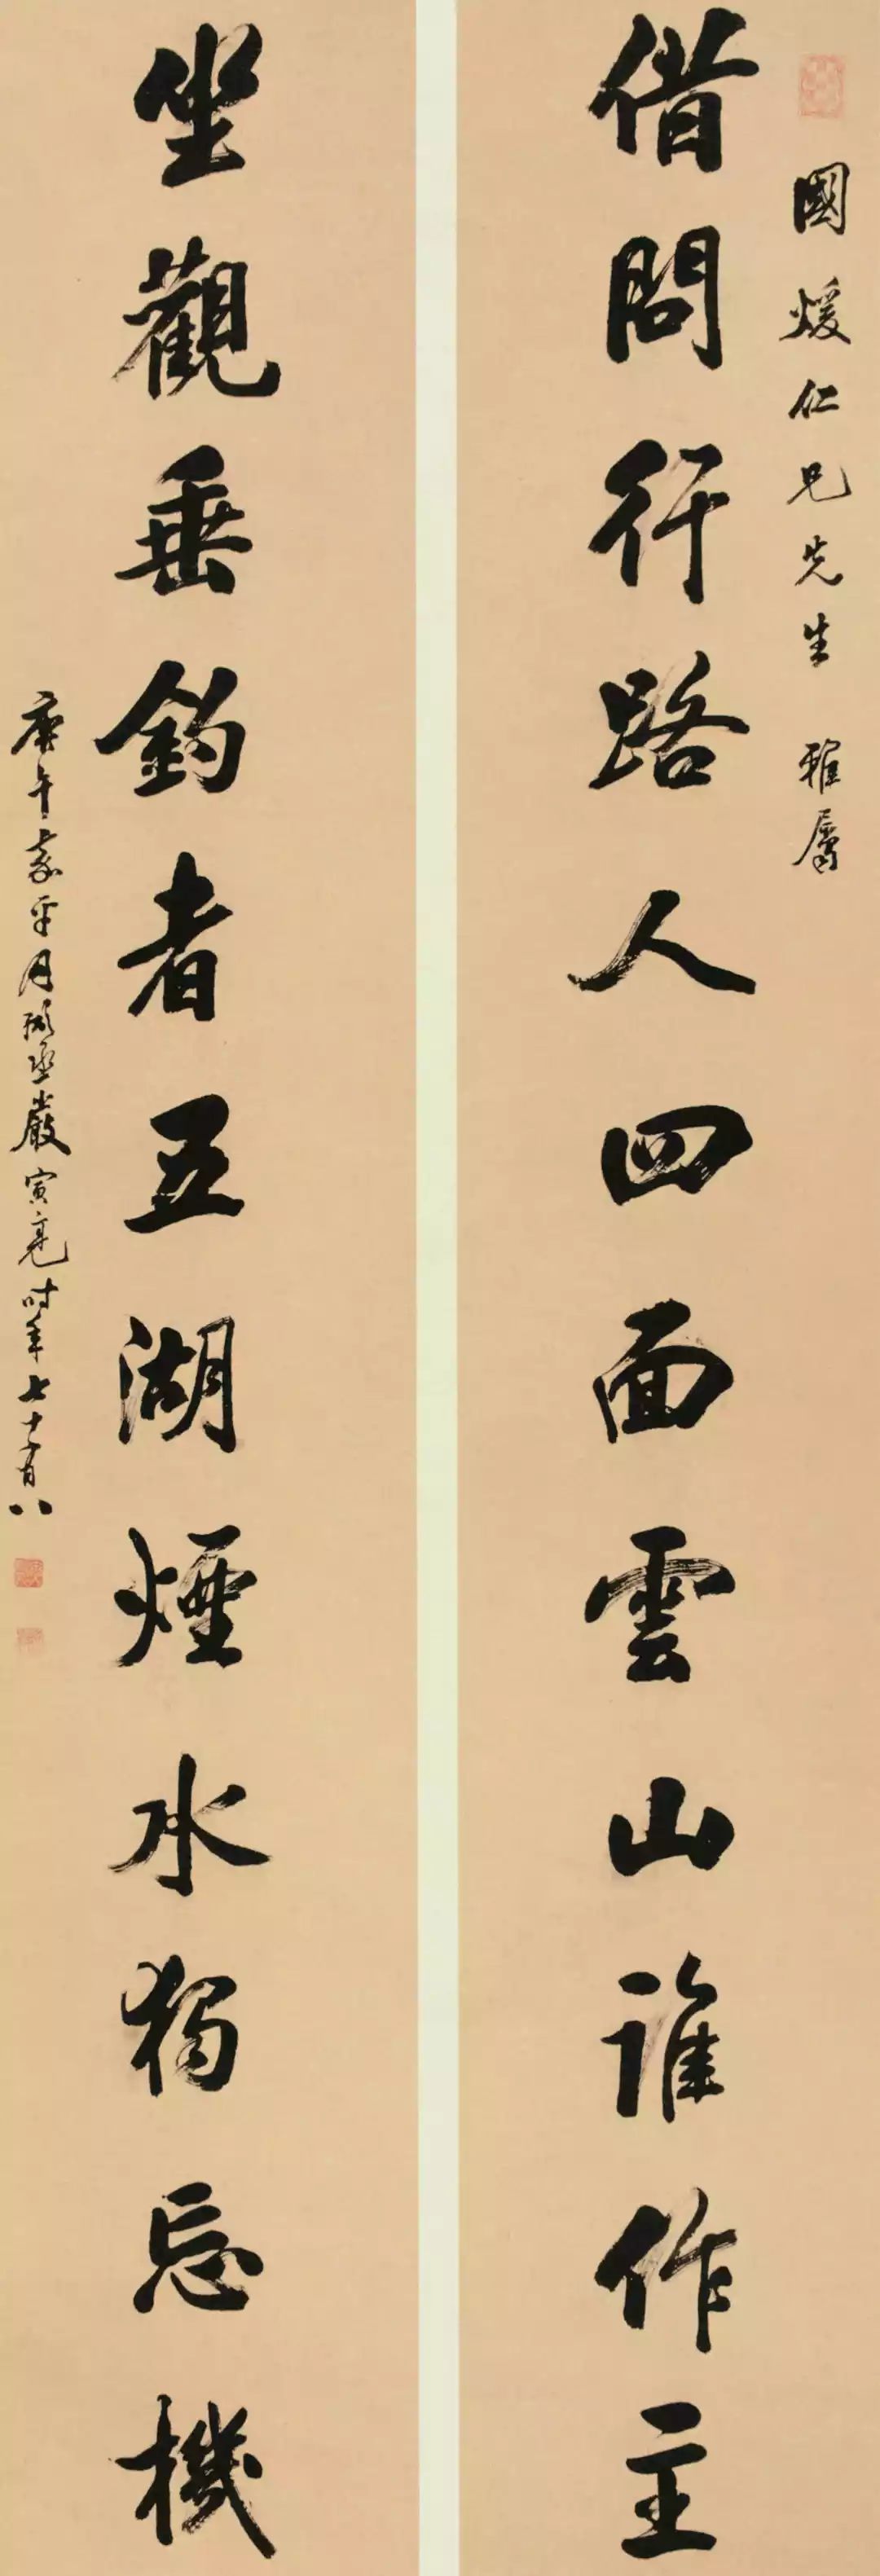 國煖仁兄先生 雅屬
借問行路人四面雲山誰作主
坐觀垂釣者五湖煙水獨忘機
庚午嘉平月 嚴寅亮時年七十有八